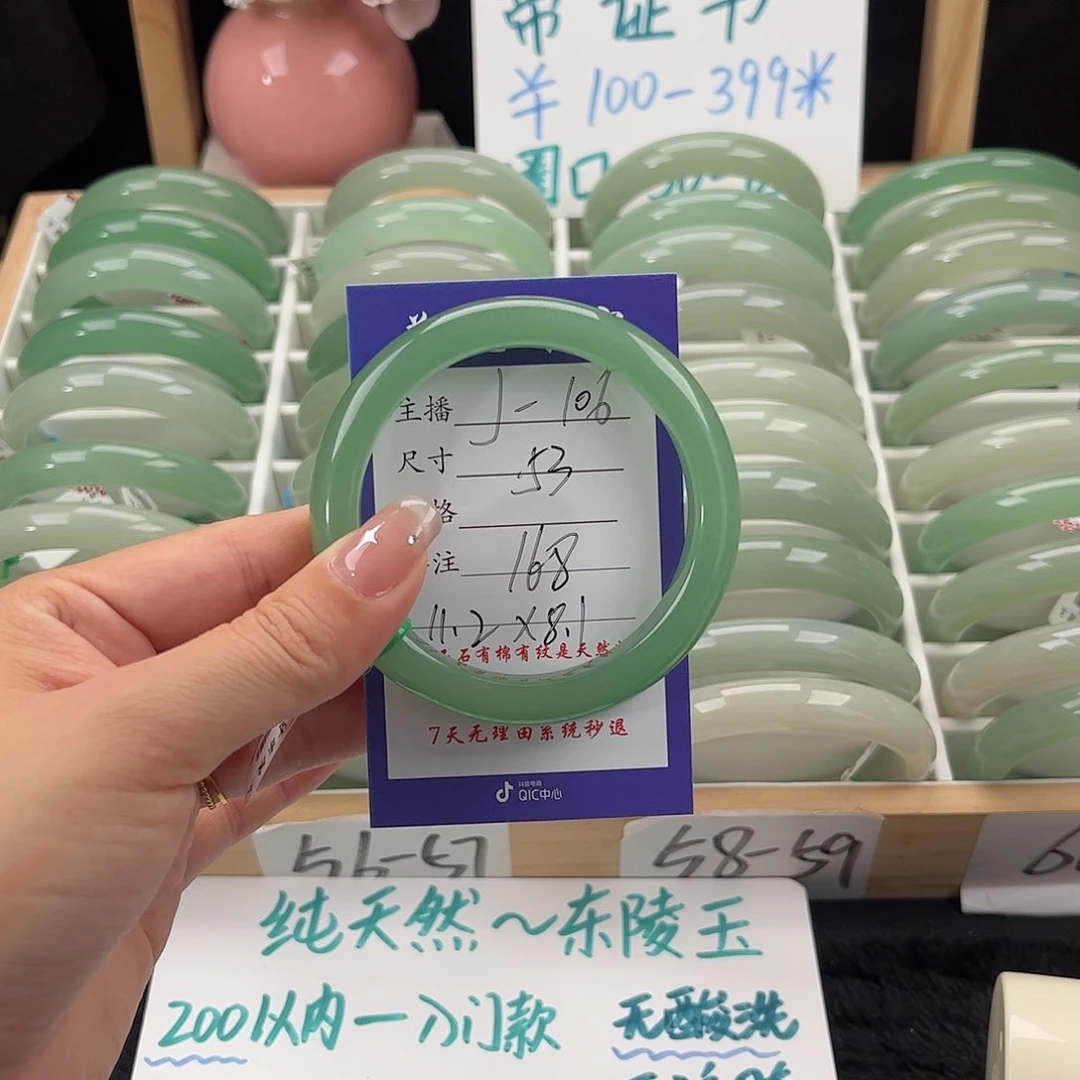 带证书
¥100-399*
圈口
主播 J-106
尺寸 53
格
注 168
11.2×8.1
石有棉有纹是天然
7天无理由系统秒退
抖音电商
QIC中心
56-57
58-59
6
纯天然~东陵玉
200以内一入门款 无酸洗